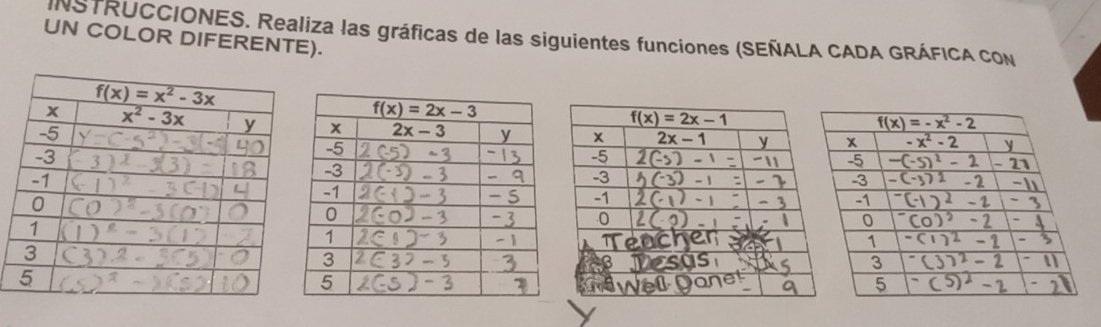 INSTRUCCIONES. Realiza las gráficas de las siguientes funciones (SEÑALA CADA GRÁFICA CON
UN COLOR DIFERENTE).
f(x) = x² - 3x
x x² - 3x y
-5 y=(-5²)-3(-5 40
-3 (-3)²-3(3) = 18
-1 (-1)² - 3(-1) 4
0 (0)²-3(0) 0
1 (1)² - 3(1) -2
3 (3)² - 3(3) 0
5 (5)² - 3(5) 10
f(x) = 2x - 3
x 2x - 3 y
-5 2(-5) -3 -13
-3 2(-3) - 3 - 9
-1 2(-1) - 3 - 5
0 2(-0) - 3 - 3
1 2(-1) -3 -1
3 2(-3) - 3 3
5 2(-5) - 3 7
f(x) = 2x - 1
x 2x - 1 y
-5 2(-5) - 1 = -11
-3 2(-3) - 1 = - 7
-1 2(-1) - 1 = - 3
0 2(-0) - 1 = - 1
Teacher: 1
Desús 5
Well Done! 9
f(x) = - x² - 2
x - x² - 2 y
-5 -(-5)² - 2 - 27
-3 -(-3)² -2 -11
-1 -(-1)² -2 - 3
0 -(0)² -2 -
1 -(1)² - 2 - 3
3 -(3)² - 2 - 11
5 -(5)² -2 - 2
Y